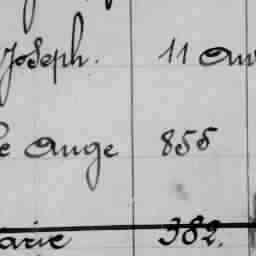 Joseph. 11 Au
e Ange 855
arie 382.